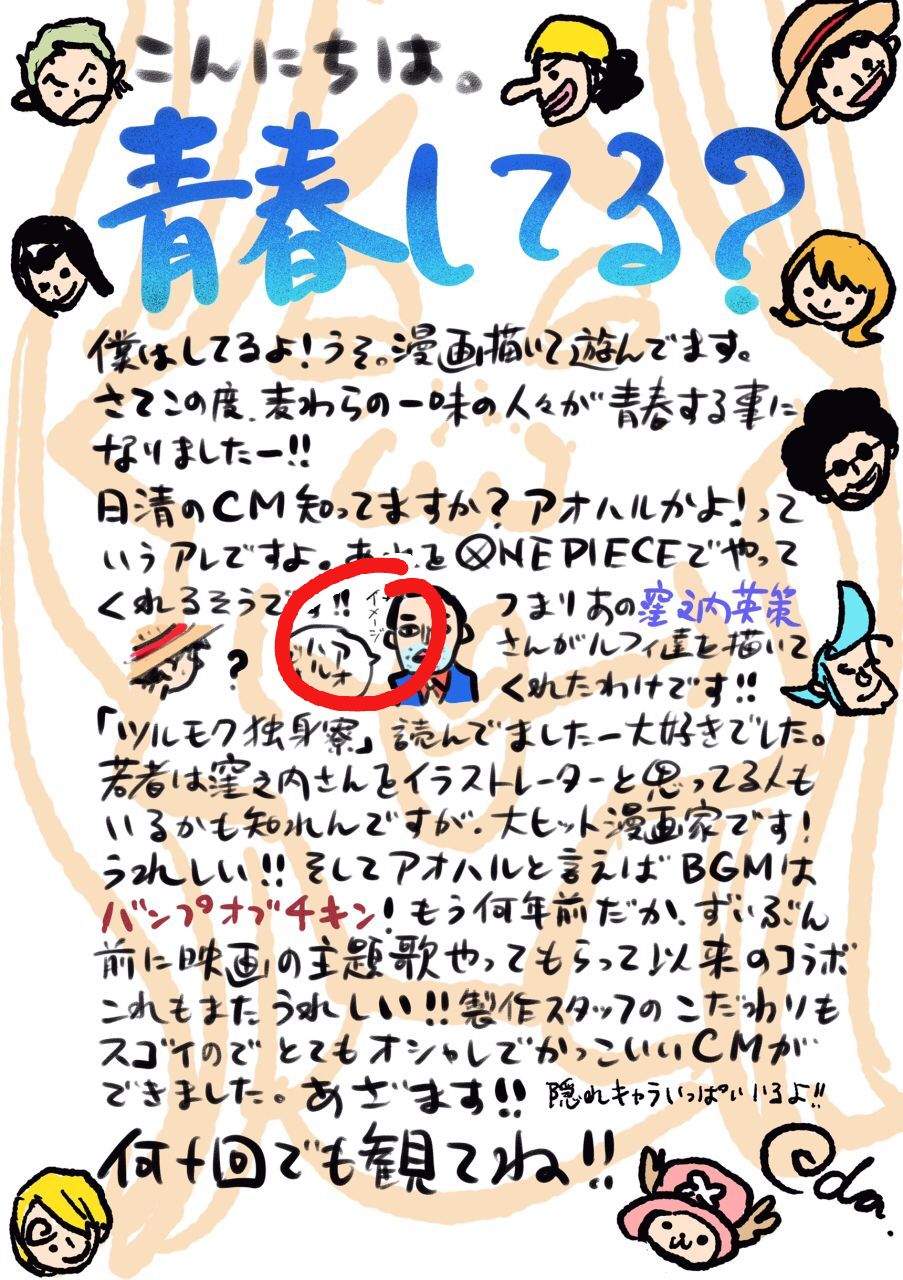 こんにちは。
青春してる?
僕はしてるよ!うそ。漫画描いて遊んでます。
さてこの度、麦わらの一味の人々が青春する事に
なりましたー!!
日清のCM知ってますか?アオハルかよ!って
いうアレですよ。あれをONE PIECEでやって
くれるそうです!!
イメージ
?
アオハル
つまりあの窪之内英策
さんがルフィ達を描いて
くれたわけです!!
「ツルモク独身寮」読んでましたー大好きでした。
若者は窪之内さんをイラストレーターと思ってる人も
いるかも知れんですが、大ヒット漫画家です!
うれしい!!そしてアオハルと言えばBGMは
バンプオブチキン!もう何年前だか、ずいぶん
前に映画の主題歌やってもらって以来のコラボ
これもまたうれしい!!製作スタッフのこだわりも
スゴイのでとてもオシャレでかっこいいCMが
できました。あざます!!
隠れキャラいっぱいいるよ!!
何十回でも観てね!!
Oda.